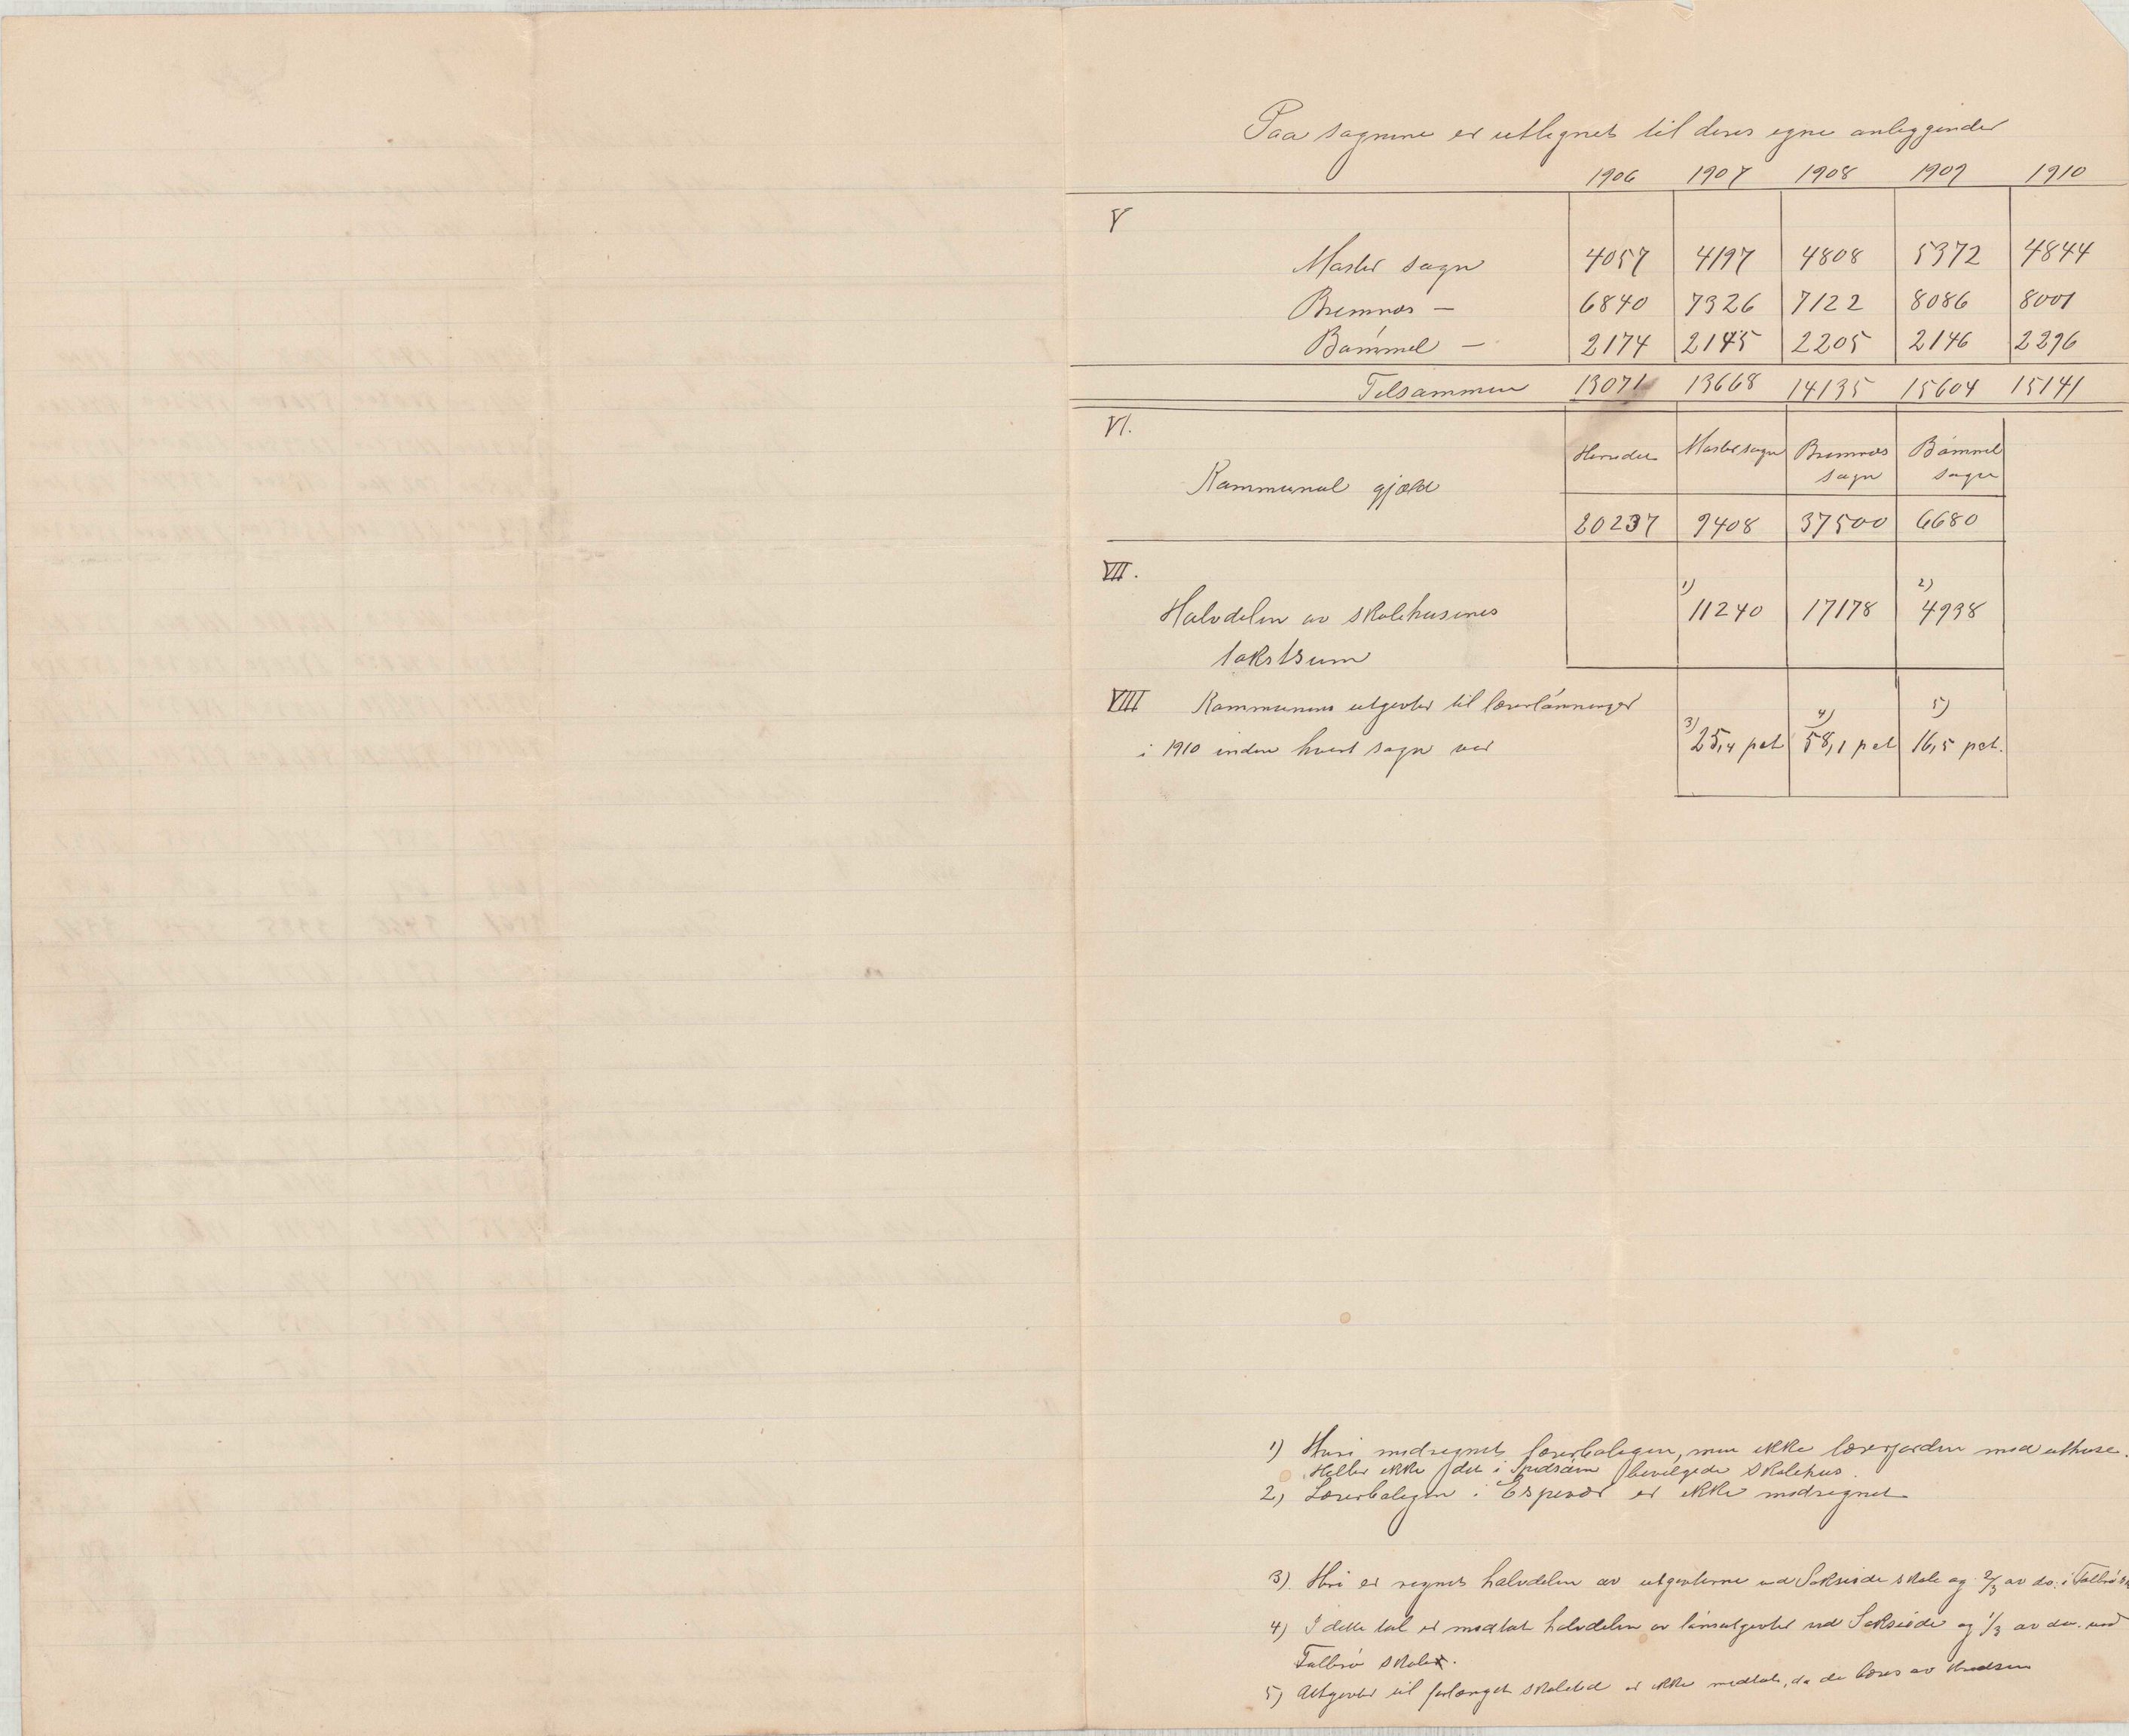 Paa sognene er utlignet til deres egne anliggender
1906 1907 1908 1909 1910
V
Moster sogn 4057 4197 4808 5372 4844
Bremnæs — 6840 7326 7122 8086 8001
Bømmel — 2174 2145 2205 2146 2296
Tilsammen 13071 13668 14135 15604 15141
VI.
Herredet Moster sogn Bremnæs sogn Bømmel sogn
Kommunal gjæld
20237 9408 37500 6680
VII.
Halvdelen av skolehusenes 1) 11240 17178 2) 4938
takstsum
VIII Kommunens utgevter til lærerlønninger
i 1910 inden hvert sogn var 3) 25,4 pct 4) 58,1 pct 5) 16,5 pct.
1) Heri medregnet lærerboligen, men ikke lærerjorden med uthuse.
Heller ikke det i bevilgede skolehus.
2) Lærerboligen i Espevær er ikke medregnet
3). Heri er regnet halvdelen av utgevterne ved skole og 2/3 av do. i
4) I dette tal er medtat halvdelen av lønsutgevter ved og 1/3 av do. ved
skole.
5) Utgevter til forlænget skoletid er ikke medtat, da de bæres av kredsen